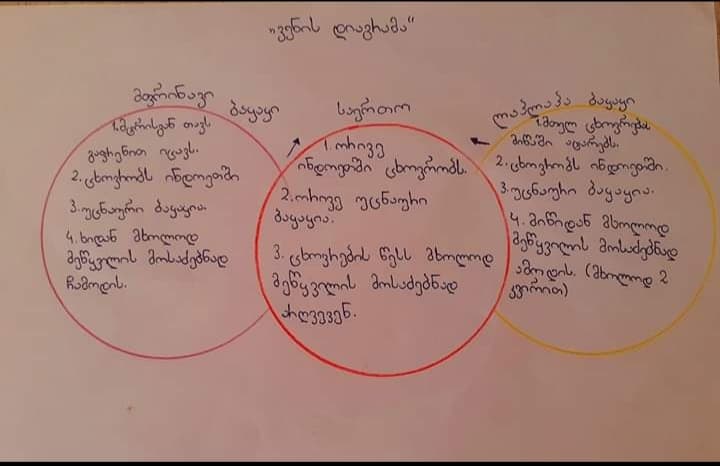 „ვენის დიაგრამა“
მფრინავი
ბაყაყი
1.მტრისგან თავს
გაფრენით იცავს.
2.ცხოვრობს ინდოეთში
3.უცნაური ბაყაყია.
4.ხიდან მხოლოდ
მეწყვილის მოსაძებნად
ჩამოდის.
საერთო
1.ორივე
ინდოეთში ცხოვრობს.
2.ორივე უცნაური
ბაყაყია.
3. ცხოვრების წესს მხოლოდ
მეწყვილის მოსაძებნად
არღვევენ.
ლაპლაპა ბაყაყი
1.მთელ ცხოვრებას
მიწაში ატარებს.
2.ცხოვრობს ინდოეთში.
3.უცნაური ბაყაყია.
4. მიწიდან მხოლოდ
მეწყვილის მოსაძებნად
ამოდის. (მხოლოდ 2
კვირით)